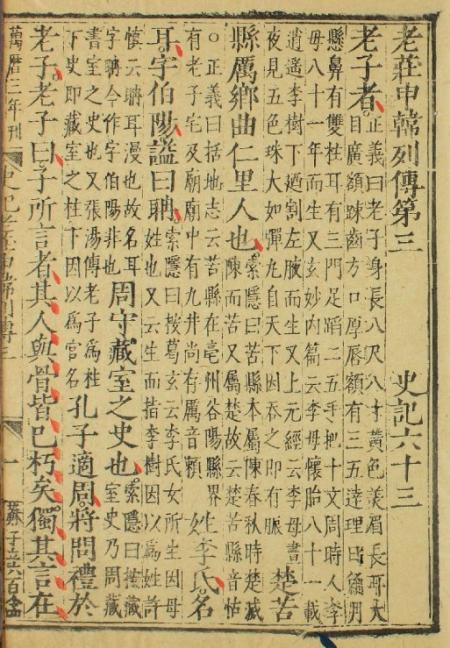 老莊申韓列傳第三　史記六十三
老子者正義曰老子身長八尺八寸黃色美眉長耳大
目廣額踈齒方口厚唇額有三五達理日角月
懸鼻有雙柱耳有三門足蹈二五手把十文周時人李
母八十一年而生又玄妙內篇云李母懷胎八十一載
逍遥李樹下廼割左腋而生又上元經云李母晝
夜見五色珠大如彈丸自天下因吞之即有娠　楚苦
縣厲鄉曲仁里人也索隱曰苦縣本屬陳春秋時楚滅
陳而苦又屬楚故云楚苦縣音怙
○正義曰括地志云苦縣在亳州谷陽縣界
有老子宅及廟廟中有九井尚存厲音頼　姓李氏名
耳字伯陽謚曰聃索隱曰按葛玄云李氏女所生因母
姓也又云生而指李樹因以爲姓許
慎云聃耳漫也故名耳
字聃今作字伯陽非也周守藏室之史也索隱曰按藏
室史乃周藏
書室之史也又張湯傳老子爲柱
下史即藏室之柱下因以爲官名孔子適周將問禮於
老子老子曰子所言者其人與骨皆已朽矣獨其言在
萬曆三年刊
一